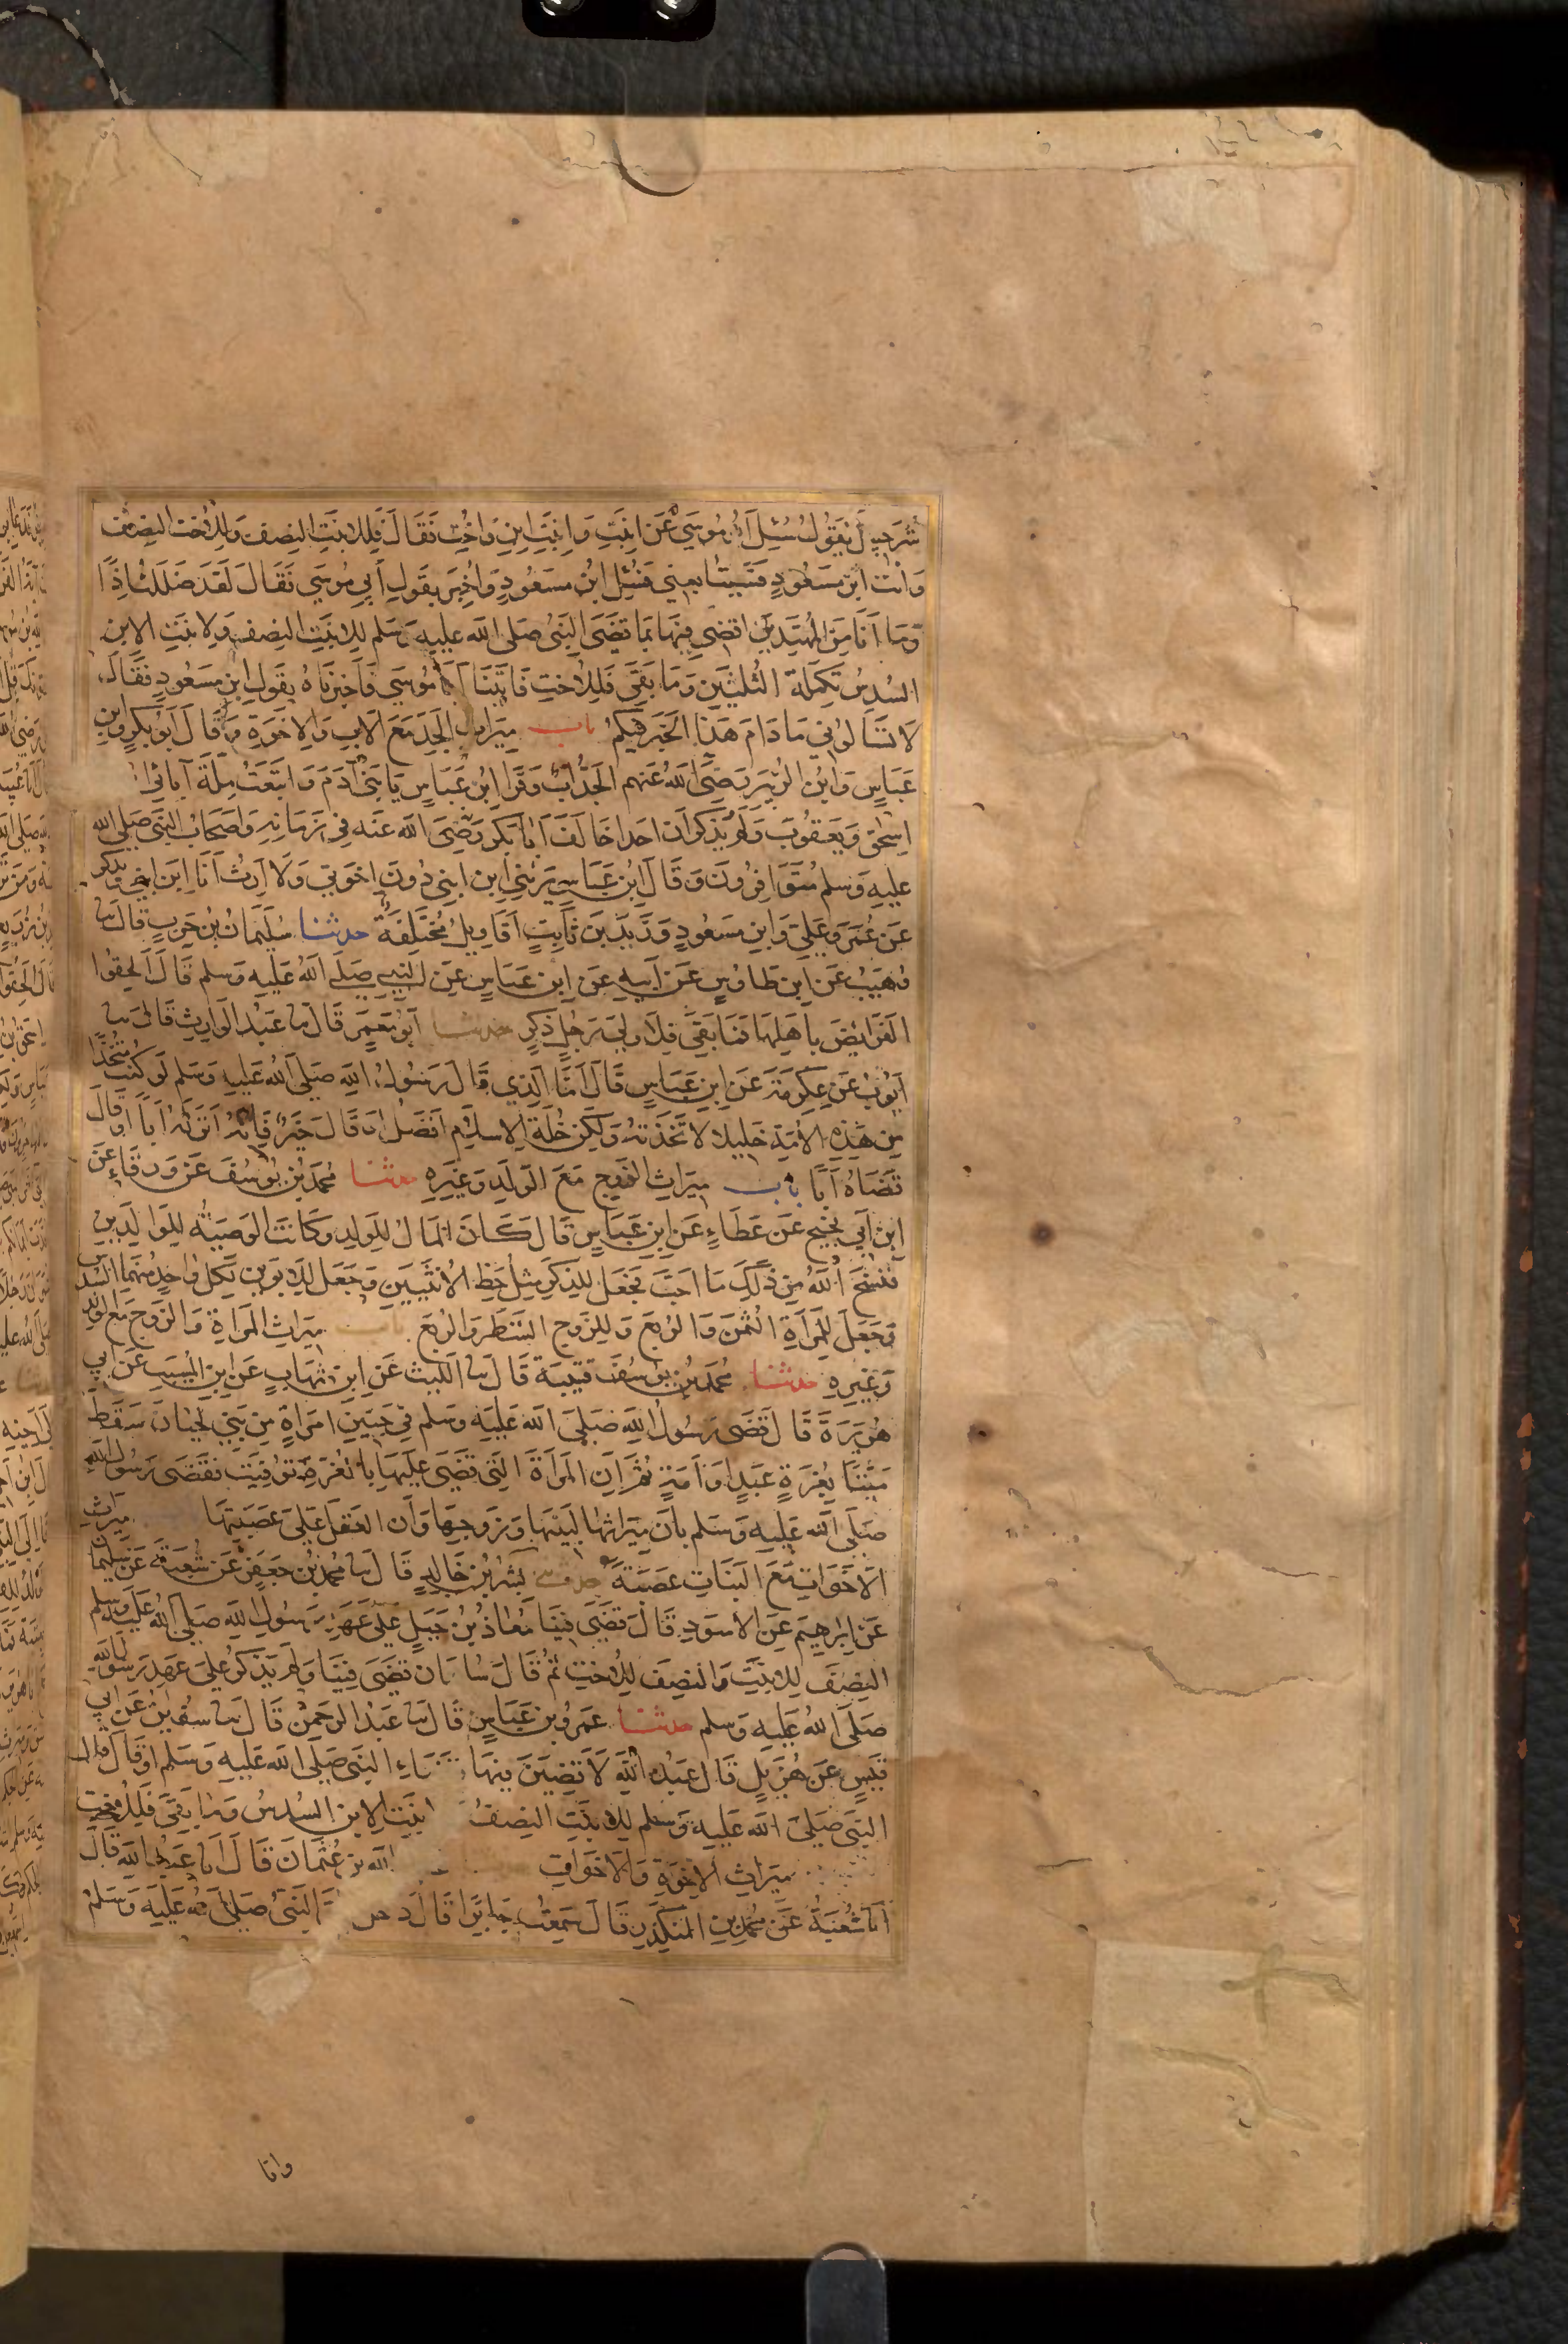 شُرَحبيلَ يَقُولُ سُئِلَ اَبُو مُوسَى عَنِ ابنَةٍ وَابنَةِ ابنٍ وَاُختٍ فَقَالَ لِلابنَةِ النِصف وَلِلاُختِ النِصفُ
وَاْتِ ابنَ مَسعُودٍ فَسَيُتابعني فَسُئِلَ ابنُ مسعُودٍ وَاُخبِرَ بقَولِ اَبي مُوسَى فَقَالَ لَقَد ضَلَلتُ اِذًا
وَمَا اَنَا مِنَ المُهتَدِينَ اَقضي فِيهَا بمَا قَضَى النَبيُ صلى الله عليه وسلم لِلابنَةِ النِصف وَلابنَةِ الابنِ
السُدسُ تَكمِلَةَ الثُلثَينِ وَمَا بَقيَ فَلِلاُختِ فَاَتَينَا اَبَا مُوسَى فَاَخبَرنَاهُ بقَولِ ابنِ مَسعُودٍ فَقَالَ
لا تَسألوُني مَا دَامَ هَذا الحَبرُ فيكُم باب ميَراثِ الجَدِ مَعَ الابِ وَالاِخوَةِ وَقَالَ اَبُو بَكرٍ وَابنُ
عَبَاسٍ وَابنُ الزُبَير رَضيَ اللهُ عَنهم الجَدُّ اَبٌ وَقَرَا ابنُ عَبَاسٍ يَا بَني آدَمَ وَاتبَعتُ مِلَةَ آبائي
اسحٰق وَيَعقُوبَ وَلَم يُذكَر اَن احَدا خَالَفَ اَبَا بَكر رَضيَ الله عَنه في زَمَانِهِ وَاَصحَابُ النَبي صَلى الله
عليهِ وَسلم مُتَوَافِرُونَ وَقَالَ ابنُ عَبَاسٍ يَرِثُني ابن ابني دُونَ اِخوَتي وَلا اَرِثُ اَنَا ابنَ ابني وَيذكَر
عَن عُمَرَ وَعَلي وَابنِ مَسعُودٍ وَزَيدِ بن ثَابِتٍ اَقَاوِيلُ مُختَلِفَةٌ حدثنا سُلَيمَانُ بنُ حَربٍ قَالَ ثنا
وُهَيبٌ عَن ابن طَاوُسٍ عَن اَبيهِ عَنِ ابن عَبَاسٍ عَنِ النَبيِ صَلَى اللهُ عَلَيه وَسلم قَالَ اَلحِقُوا
الفَرَائِضَ بِاَهلِهَا فَمَا بَقيَ فَلاَولَى رَجُلٍ ذَكَرٍ حدثنا اَبُو مَعمَرٍ قَالَ ثنا عَبدُ الوَارِثِ قَالَ ثنا
اَيُوبُ عَن عِكرِمَةَ عَنِ ابنِ عَبَاسٍ قَالَ اَمَّا الَذي قَالَ رَسُولُ اللهِ صَلَى اللهُ عَلَيهِ وَسَلم لَو كُنتُ مُتخِذًا
مِن هَذِهِ الاُمَةِ خَليلا لاتَخَذتهُ وَلَكِن خُلَةُ الاِسلامِ اَفضَلُ اَو قَالَ خَيرٌ فَاِنَهُ اَنزَلَهُ اَبًا اَو قَالَ
قَضَاهُ اَبًا باب ميرَاثِ الزَوجِ مَعَ الوَلَدِ وَغَيرِهِ حدثنا محمدُ بنُ يُوسُفَ عَن وَرقَاءَ عَن
ابنِ اَبي نجيحٍ عَن عَطَاءٍ عَنِ ابنِ عَبَاسٍ قَالَ كَانَ المَالُ لِلوَلَدِ وَكَانَت الوَصيَةُ لِلوَالِدَينِ
فَنَسَخَ اللهُ مِن ذَلِكَ مَا اَحَبَ فَجَعَلَ لِلذَكَرِ مِثلُ حَظِ الاُنثَيَينِ وَجَعَلَ لِلاَبوَينِ لِكُلِ وَاحِدٍ مِنهُمَا السُدسُ
وَجَعَلَ لِلمَراَةِ الثُمنَ وَالرُبعَ وَلِلزَوجِ الشَطرَ وَالرُبعَ باب ميرَاثِ المَراَةِ وَالزَوجِ مَعَ الوَلَدِ
وَغَيرِهِ حدثنا محمدُ بنُ يوُسُفَ قتيبَة قَالَ ثنا الليثُ عَنِ ابنِ شِهَابٍ عَنِ ابنِ المُسَيبِ عَن اَبي
هُرَيرَةَ قَالَ قَضَى رَسُولُ اللهِ صَلَى اللهُ عَلَيه وسَلم في جَنينِ امرَاةٍ مِن بَني لِحيَان سَقَطَ
مَيتًا بِغُرَةٍ عَبدٍ اَو اَمَةٍ ثُمَ اِنَ المَراَةَ التَي قَضَى عَلَيهَا بِالغُرَةِ تُوُفِيَت فَقَضَى رَسُول اللهِ
صَلَى اللهُ عَلَيهِ وَسَلم بِاَن مِيرَاثَها لِبَنيهَا وَزَوجِهَا وَاَن العَقلَ عَلَى عَصَبَتِهَا ميرَاثِ
الاَخَوَاتِ مَعَ البَنَاتِ عَصَبَةٌ حدثني بِشرُ بنُ خَالِدٍ قَالَ ثنا محمدُ بنُ جَعفَرٍ عَن شُعبَة عَن سُليَمان
عَن اِبرهِيم عَنِ الاَسوَدِ قَالَ قَضَى فينَا مُعَاذُ بنُ جَبَلٍ عَلَى عَهدِ رَسُولِ اللهِ صَلَى اللهُ عَلَيه وَسلم
النِصفَ لِلابنَةِ وَالنِصفَ لِلاُختِ ثُم قَالَ سُليمَان قَضَى فينَا وَلَم يَذكُر عَلَى عَهدِ رَسُول اللهِ
صَلَى اللهُ عَلَيهِ وَسلم حدثنا عَمرُو بن عَبَاسٍ قَالَ ثنا عَبدُ الرَحمٰن قَالَ ثنا سُفيٰن عَن اَبي
قَيسٍ عَن هُزَيلٍ قَالَ عَبدُ اللهِ لاَقضِيَنَ فيهَا بقَضَاءِ النَبي صَلَى اللهُ عَلَيهِ وَسَلم اَو قَالَ قال
النَبي صَلَى اللهُ عَلَيهِ وَسلم لِلابنَةِ النِصفُ ابنَةِ الابنِ السُدسُ وَمَا بَقيَ فَلِلاُختِ
ميرَاثِ الاخوَةِ وَالاَخَوَاتِ اللهِ بن عُثمَانَ قَالَ اَنا عَبدُ اللهِ قَالَ
اَنا شُعبَةُ عَن محمدِ بنِ المُنكَدِرِ قَالَ سَمِعتُ جَابِرًا قَالَ دخل النَبيُ صَلَى اللهُ عَلَيهِ وَسَلم
وانا